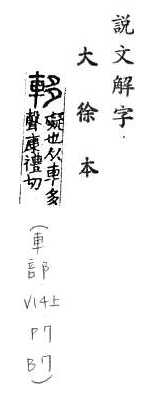 說文解字.
大徐本
礙也从車多
聲康禮切
(車部 V14上 P7 B7)